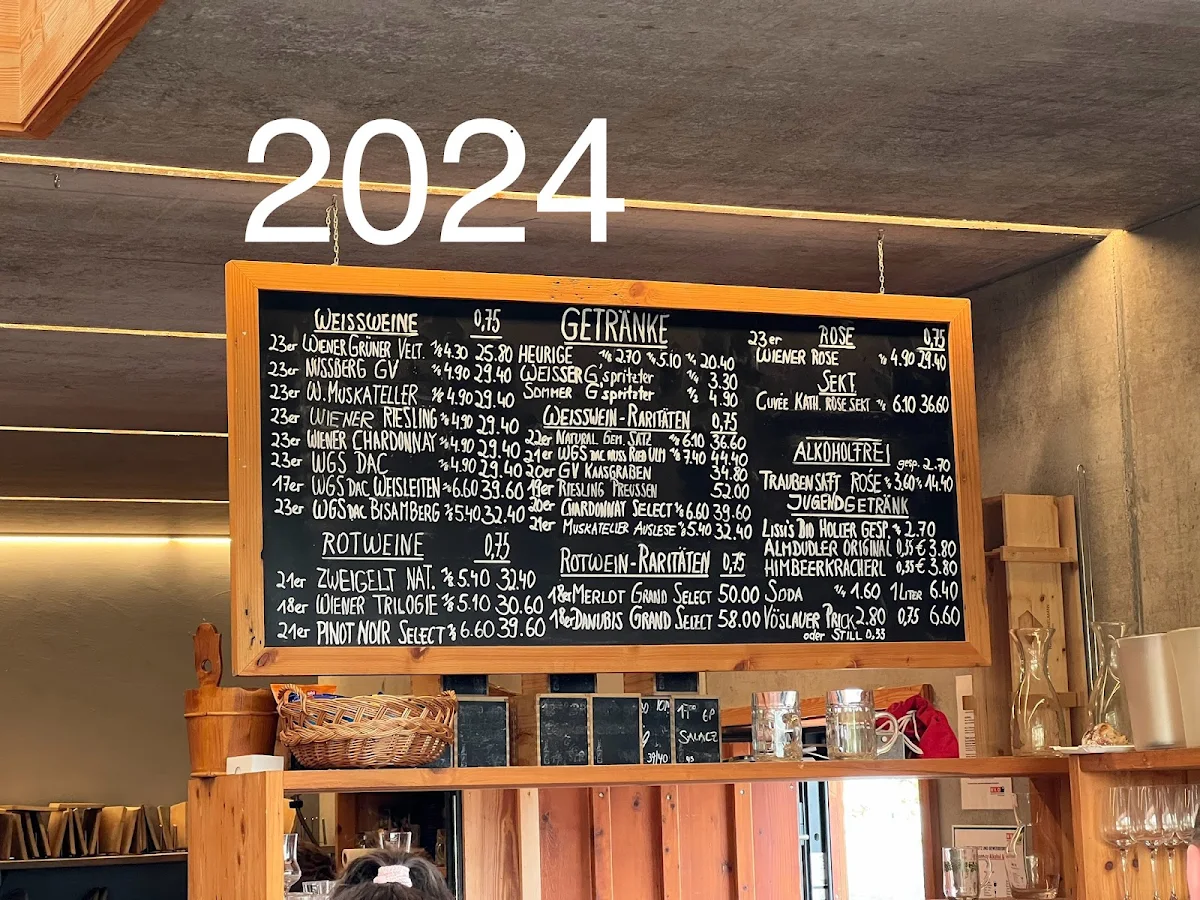 2024
WEISSWEINE 0,75
23er WIENER GRÜNER VELT. 1/8 4.30 25.80
23er NUSSBERG GV 1/8 4.90 29.40
23er W. MUSKATELLER 1/8 4.90 29.40
23er WIENER RIESLING 1/8 4.90 29.40
23er WIENER CHARDONNAY 1/8 4.90 29.40
23er WGS DAC 1/8 4.90 29.40
17er WGS DAC WEISLEITEN 1/8 6.60 39.60
23er WGS DAC BISAMBERG 1/8 5.40 32.40
ROTWEINE 0,75
21er ZWEIGELT NAT. 1/8 5.40 32.40
18er WIENER TRILOGIE 1/8 5.10 30.60
21er PINOT NOIR SELECT 1/8 6.60 39.60
GETRÄNKE
HEURIGE 1/8 2.70 1/4 5.10 1/1 20.40
WEISSER G'spritzter 1/4 3.30
SOMMER G'spritzter 1/2 4.90
WEISSWEIN-RARITÄTEN 0,75
22er NATURAL GEM. SATZ 1/8 6.10 36.60
21er WGS DAC NUSS RIED ULM 1/8 7.40 44.40
20er GV KAASGRABEN 34.80
19er RIESLING PREUSSEN 52.00
20er CHARDONNAY SELECT 1/8 6.60 39.60
21er MUSKATELLER AUSLESE 1/8 5.40 32.40
ROTWEIN-RARITÄTEN 0,75
18er MERLOT GRAND SELECT 50.00
18er DANUBIS GRAND SELECT 58.00
23er ROSE 0,75
WIENER ROSE 1/8 4.90 29.40
SEKT
CUVÉE KATH. ROSE SEKT 6.10 36.60
ALKOHOLFREI
gesp. 2.70
TRAUBENSAFT ROSÉ 1/4 3.60 1/1 14.40
JUGENDGETRÄNK
LISSI'S BIO HOLLER GESP. 1/4 2.70
ALMDUDLER ORIGINAL 0,35 € 3.80
HIMBEERKRACHERL 0,35 € 3.80
SODA 1/4 1.60 1 LITER 6.40
VÖSLAUER PRICK 2.80 0,75 6.60
oder STILL 0,33